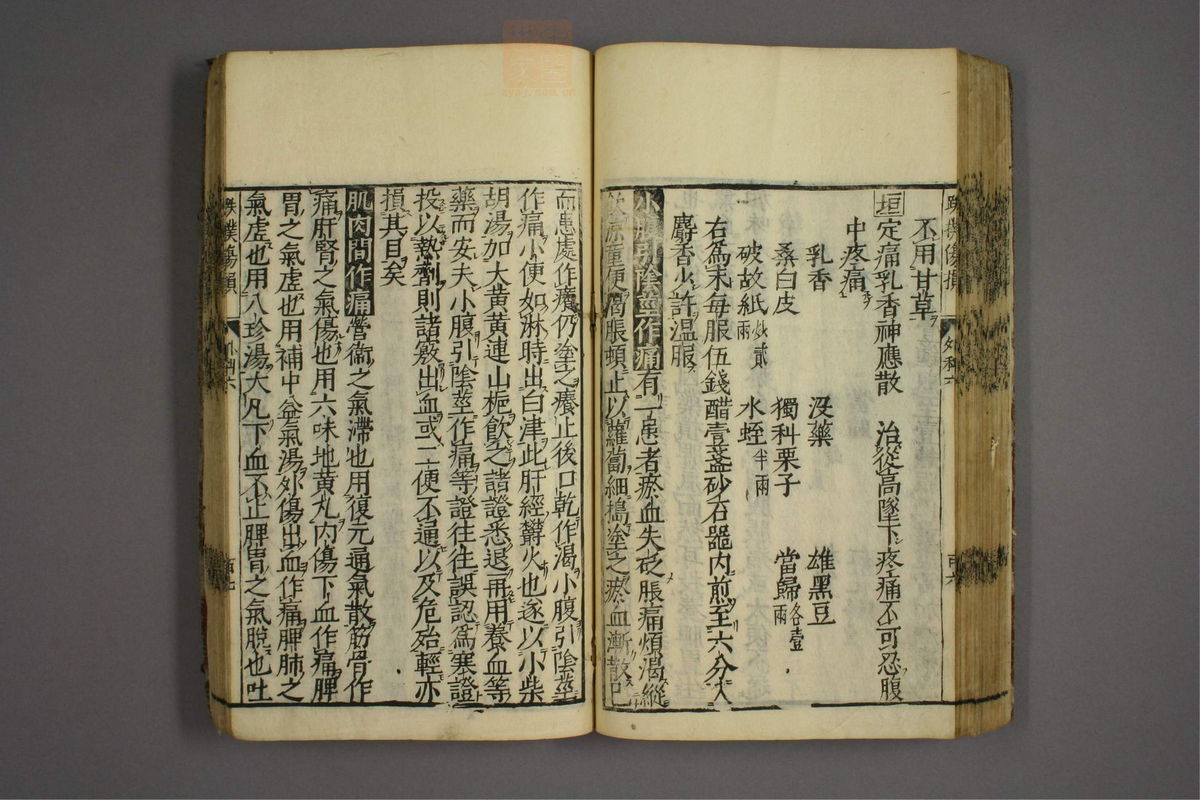 不用甘草
垣定痛乳香神應散 治從高墜下疼痛不可忍腹
中疼痛
乳香 沒藥 雄黑豆
桑白皮 獨科栗子 當歸各壹兩
破故紙炒貳兩 水蛭半兩
右為末每服伍錢醋壹盞砂石器內煎至六分入
麝香少許溫服
小腹引陰莖作痛有一患者瘀血失砭脹痛煩渴縱
飲涼童便渴脹頓止以蘿蔔細搗塗之瘀血漸散已
而患處作癢仍塗之癢止後口乾作渴小腹引陰莖
作痛小便如淋時出白津此肝經鬱火也遂以小柴
胡湯加大黃黃連山梔飲之諸證悉退再用養血等
藥而安夫小腹引陰莖作痛等證往往誤認為寒證
投以熱劑則諸竅出血或二便不通以及危殆輕亦
損其目矣
肌肉間作痛營衛之氣滯也用復元通氣散筋骨作
痛肝腎之氣傷也用六味地黃丸內傷下血作痛脾
胃之氣虛也用補中益氣湯外傷出血作痛脾肺之
氣虛也用八珍湯大凡下血不止脾胃之氣脫也吐
跌撲傷損 外科六